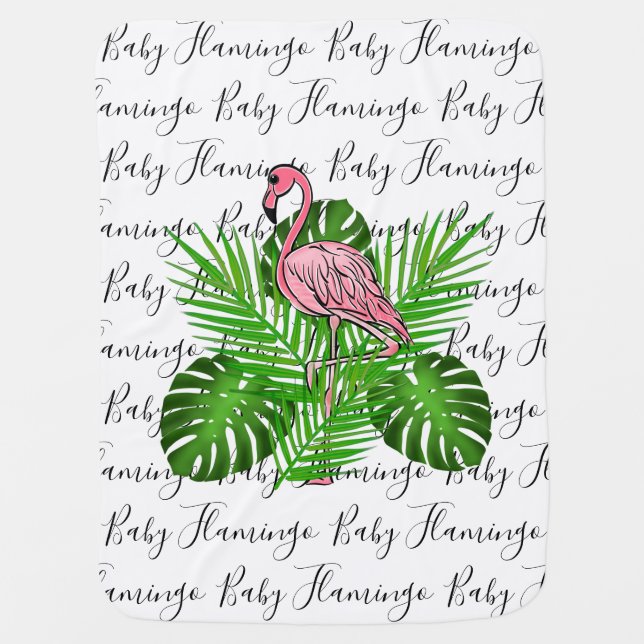 Baby Flamingo Baby Flamingo
amingo Baby Flamingo Baby Fl
Baby Flamingo Baby Flamingo
amingo Baby Baby Fl
Baby Flamingo
amingo Baby Fl
Baby Flamingo
amingo Baby Flamingo Baby Fl
Baby Flamingo Baby Flamingo
amingo Baby Flamingo Baby Fl